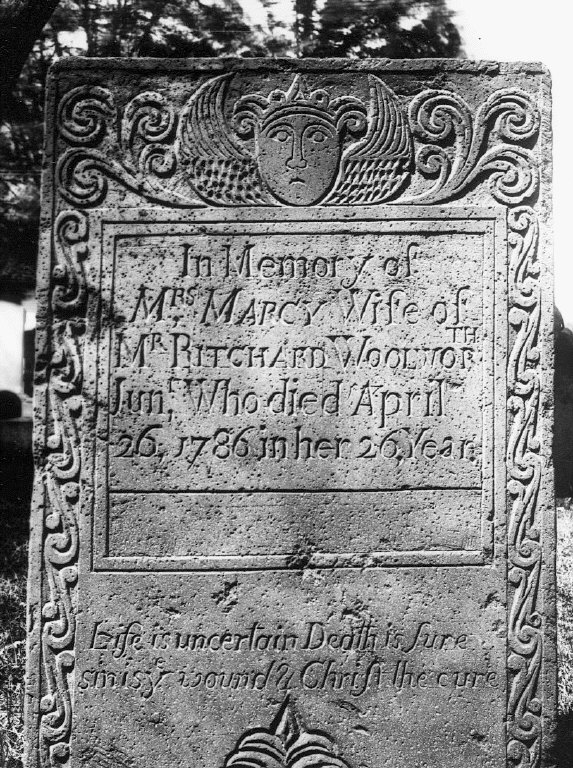 In Memory of
MRS MARCY Wife of
MR RITCHARD WOOLWORTH
Junr Who died April
26, 1786, in her 26, Year
Life is uncertain Death is ſure
sin is ye wound & Chriſt the cure